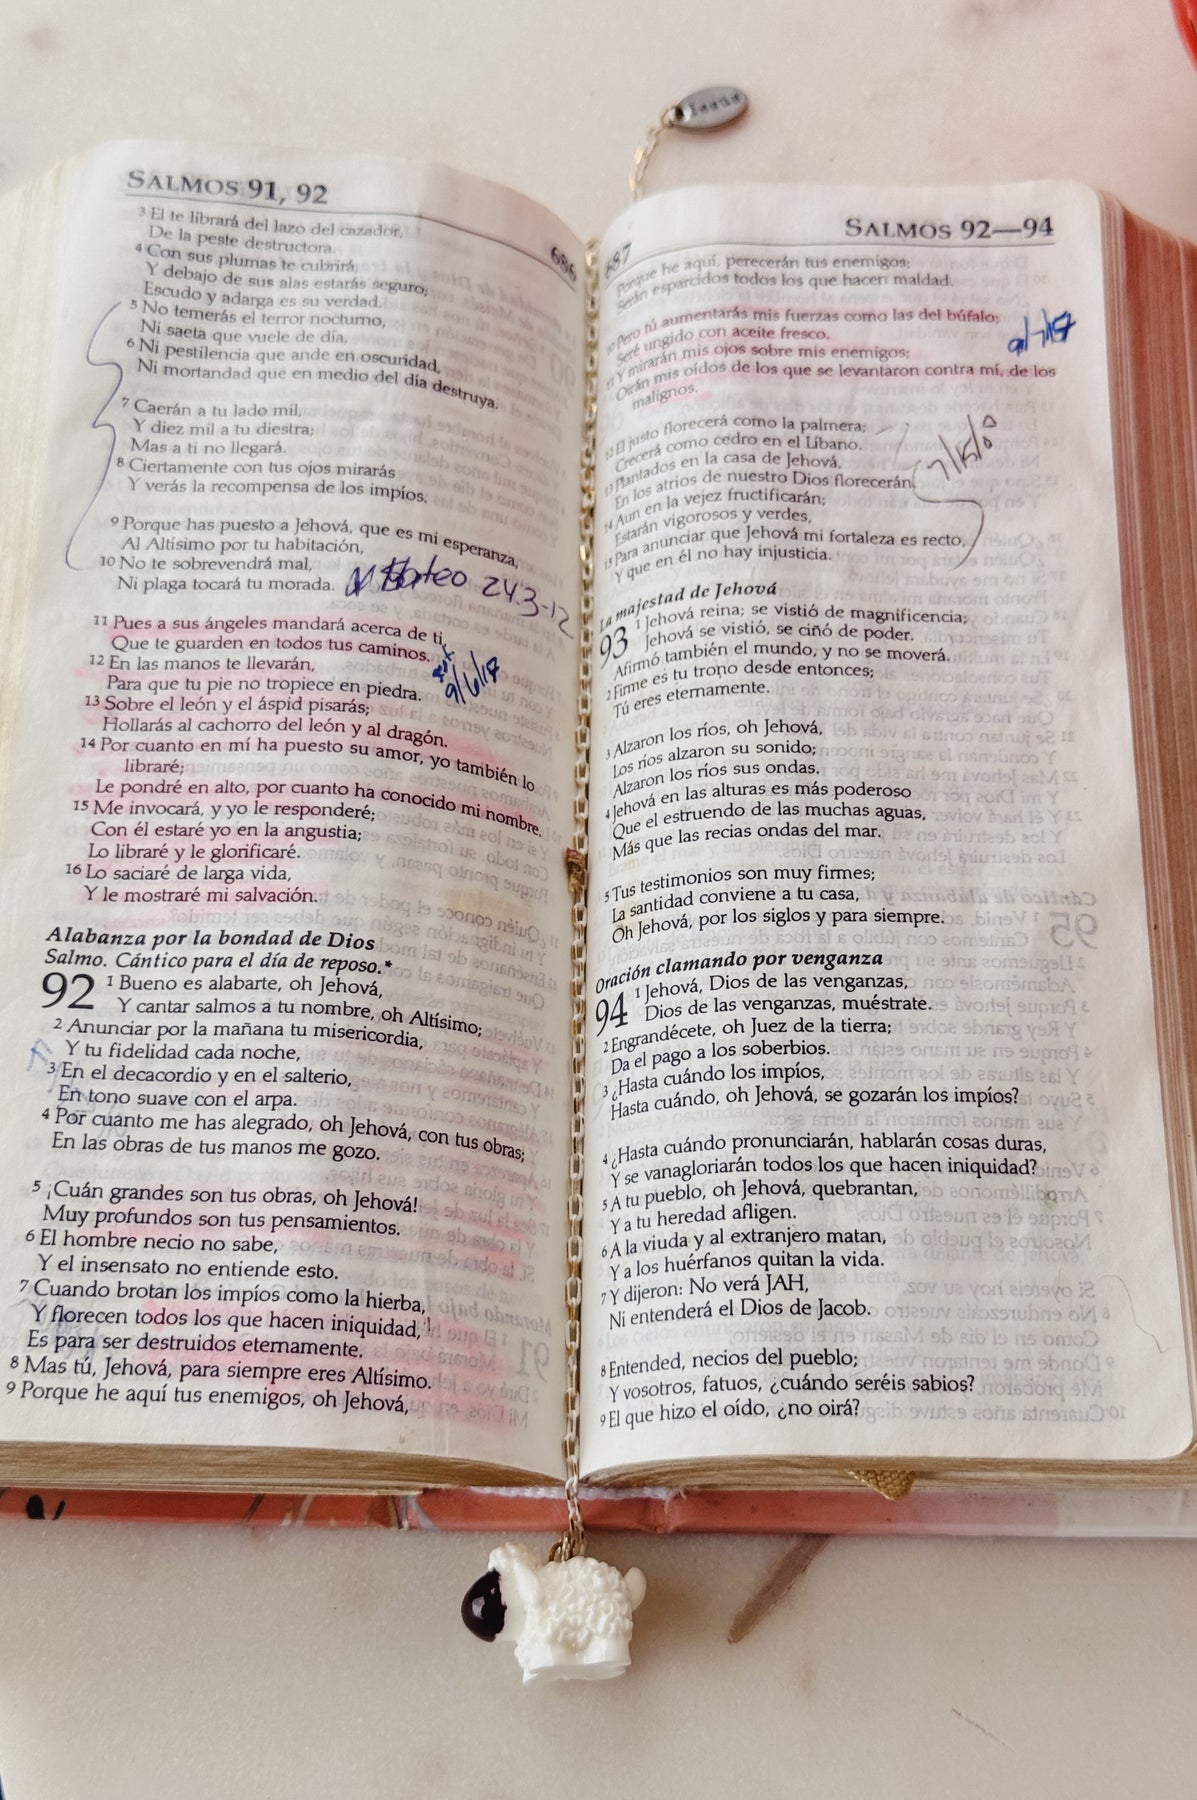 SALMOS 91, 92
686
3 El te librará del lazo del cazador,
De la peste destructora.
4 Con sus plumas te cubrirá,
Y debajo de sus alas estarás seguro;
Escudo y adarga es su verdad.
5 No temerás el terror nocturno,
Ni saeta que vuele de día,
6 Ni pestilencia que ande en oscuridad,
Ni mortandad que en medio del día destruya.
7 Caerán a tu lado mil,
Y diez mil a tu diestra;
Mas a ti no llegará.
8 Ciertamente con tus ojos mirarás
Y verás la recompensa de los impíos.
9 Porque has puesto a Jehová, que es mi esperanza,
Al Altísimo por tu habitación,
10 No te sobrevendrá mal,
Ni plaga tocará tu morada.
Mateo 24:3-12
11 Pues a sus ángeles mandará acerca de ti,
Que te guarden en todos tus caminos.
12 En las manos te llevarán,
Para que tu pie no tropiece en piedra.
13 Sobre el león y el áspid pisarás;
Hollarás al cachorro del león y al dragón.
14 Por cuanto en mí ha puesto su amor, yo también lo
libraré;
Le pondré en alto, por cuanto ha conocido mi nombre.
15 Me invocará, y yo le responderé;
Con él estaré yo en la angustia;
Lo libraré y le glorificaré.
16 Lo saciaré de larga vida,
Y le mostraré mi salvación.
Alabanza por la bondad de Dios
Salmo. Cántico para el día de reposo.*
92 1 Bueno es alabarte, oh Jehová,
Y cantar salmos a tu nombre, oh Altísimo;
2 Anunciar por la mañana tu misericordia,
Y tu fidelidad cada noche,
3 En el decacordio y en el salterio,
En tono suave con el arpa.
4 Por cuanto me has alegrado, oh Jehová, con tus obras;
En las obras de tus manos me gozo.
5 ¡Cuán grandes son tus obras, oh Jehová!
Muy profundos son tus pensamientos.
6 El hombre necio no sabe,
Y el insensato no entiende esto.
7 Cuando brotan los impíos como la hierba,
Y florecen todos los que hacen iniquidad,
Es para ser destruidos eternamente.
8 Mas tú, Jehová, para siempre eres Altísimo.
9 Porque he aquí tus enemigos, oh Jehová,
687
SALMOS 92—94
Porque he aquí, perecerán tus enemigos;
Serán esparcidos todos los que hacen maldad.
10 Pero tú aumentarás mis fuerzas como las del búfalo;
Seré ungido con aceite fresco.
11 Y mirarán mis ojos sobre mis enemigos;
Oirán mis oídos de los que se levantaron contra mí, de los
malignos.
12 El justo florecerá como la palmera;
Crecerá como cedro en el Líbano.
13 Plantados en la casa de Jehová,
En los atrios de nuestro Dios florecerán.
14 Aun en la vejez fructificarán;
Estarán vigorosos y verdes,
15 Para anunciar que Jehová mi fortaleza es recto,
Y que en él no hay injusticia.
La majestad de Jehová
93 1 Jehová reina; se vistió de magnificencia;
Jehová se vistió, se ciñó de poder.
Afirmó también el mundo, y no se moverá.
2 Firme es tu trono desde entonces;
Tú eres eternamente.
3 Alzaron los ríos, oh Jehová,
Los ríos alzaron su sonido;
Alzaron los ríos sus ondas.
4 Jehová en las alturas es más poderoso
Que el estruendo de las muchas aguas,
Más que las recias ondas del mar.
5 Tus testimonios son muy firmes;
La santidad conviene a tu casa,
Oh Jehová, por los siglos y para siempre.
Oración clamando por venganza
94 1 Jehová, Dios de las venganzas,
Dios de las venganzas, muéstrate.
2 Engrandécete, oh Juez de la tierra;
Da el pago a los soberbios.
3 ¿Hasta cuándo los impíos,
Hasta cuándo, oh Jehová, se gozarán los impíos?
4 ¿Hasta cuándo pronunciarán, hablarán cosas duras,
Y se vanagloriarán todos los que hacen iniquidad?
5 A tu pueblo, oh Jehová, quebrantan,
Y a tu heredad afligen.
6 A la viuda y al extranjero matan,
Y a los huérfanos quitan la vida.
7 Y dijeron: No verá JAH,
Ni entenderá el Dios de Jacob.
8 Entended, necios del pueblo;
Y vosotros, fatuos, ¿cuándo seréis sabios?
9 El que hizo el oído, ¿no oirá?